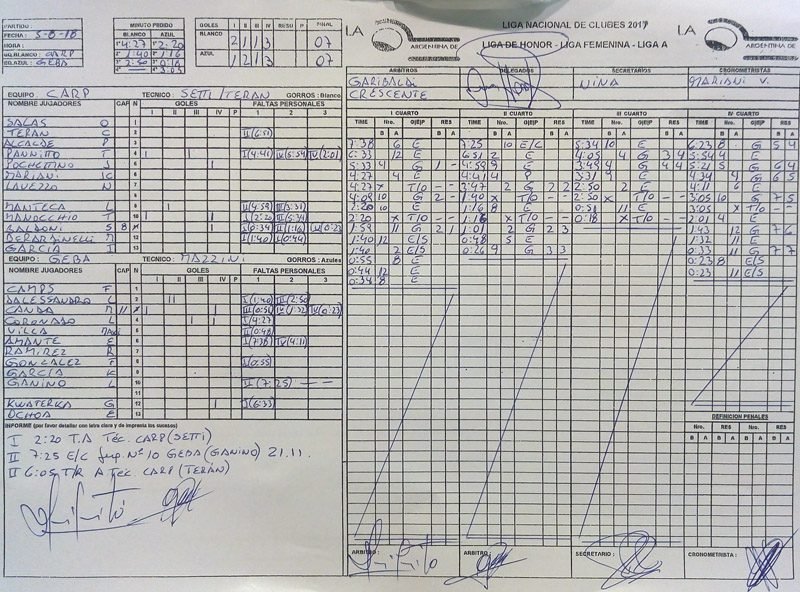 PARTIDO :
FECHA : 5-8-18
HORA :
EQ.BLANCO : CARP
EQ.AZUL : GEBA
MINUTO PEDIDO
BLANCO AZUL
1º 4:27 1º 2:20
2º 1:40 2º 1:16
3º 2:50 3º 0:18
4º — 4º 3:05
GOLES I II III IV RESU P FINAL
BLANCO 2 1 1 3 07
AZUL 1 2 1 3 07
LA LIGA NACIONAL DE CLUBES 2017 LA
ARGENTINA DE LIGA DE HONOR - LIGA FEMENINA - LIGA A ARGENTINA DE
ARBITROS DELEGADOS SECRETARIOS CRONOMETRISTAS
GARIBALDI NINA MARIANI V.
CRESCENTE
EQUIPO : CARP TECNICO : SETTI/TERAN GORROS : Blanco
NOMBRE JUGADORES CAP N GOLES FALTAS PERSONALES
I II III IV P 1 2 3
SALAS O 1
TERAN C 2 II(6:51)
ALCALDE P 3
PANNITTO T 4 I(4:41) II(5:54) IV(2:01)
POCHETTINO S 5
MARIANI JC 6
LAVEZZO N 7
8
MANTECA L 9 II(4:59) III(3:31)
MANOCCHIO T 10 I(2:20) II(5:34)
BALDONI S 8
BERARDINELLI M 12 I(1:40) II(0:44)
GARCIA I 13
EQUIPO : GEBA TECNICO : MAZZINI GORROS : Azules
NOMBRE JUGADORES CAP N GOLES FALTAS PERSONALES
I II III IV P 1 2 3
CAMPS F 1
DALESSANDRO L 2 I(1:40) III(2:50)
CANDA M 11 III(0:51) IV(1:32) IV(0:23)
CORONADO L 4 I(4:27)
VILLA 5 II(0:48)
AMANTE E 6 I(7:38) IV(4:11)
RAMIREZ R 7
GONZALEZ F 8 I(0:55)
GARCIA K 9
GANINO L 10 II(7:25) — —
KWATERKA G 12 I(6:33)
OCHOA E 13
I CUARTO II CUARTO III CUARTO IV CUARTO
TIME Nro. G|E|P RES TIME Nro. G|E|P RES TIME Nro. G|E|P RES TIME Nro. G|E|P RES
B A B A B A B A B A B A B A B A
7:38 6 E 7:25 10 E/C 5:34 10 E 6:23 8 G 5 4
6:33 12 E 6:51 2 E 4:05 4 G 3 4 5:54 4 E
5:33 4 G 1 - 4:59 9 E 3:49 G 4 4 5:21 G 6 4
4:27 4 E 4:41 4 P 3:31 9 E 4:34 4 G 6 5
4:27 x T/O - - 3:47 2 G 2 2 2:50 2 E 4:11 6 E
4:09 10 G 2 - 1:40 x T/O - - 2:50 x T/O - - 3:05 10 G 7 5
2:20 10 E 1:16 8 E 0:51 11 E 3:05 x T/O - -
2:20 x T/O - - 1:16 x T/O - - 0:18 x T/O - - 2:01 4 E
1:59 11 G 2 1 1:01 2 G 2 3 1:43 12 G 7 6
1:40 12 E/S 0:48 5 E 1:32 11 E
1:40 2 E/S 0:26 9 G 3 3 0:33 11 G 7 7
0:55 8 E 0:23 8 E/S
0:44 12 E 0:23 11 E/S
0:34 8 E
DEFINICION PENALES
Nro. RES Nro. RES
B A B A B A B A
INFORME (por favor detallar con letra clara y de imprenta los sucesos)
I 2:20 T.A Téc. CARP (SETTI)
II 7:25 E/C Jug. Nº 10 GEBA (GANINO) 21.11.
II 6:05 T/R A Téc. CARP (TERÁN)
ARBITRO : ARBITRO : SECRETARIO : CRONOMETRISTA :